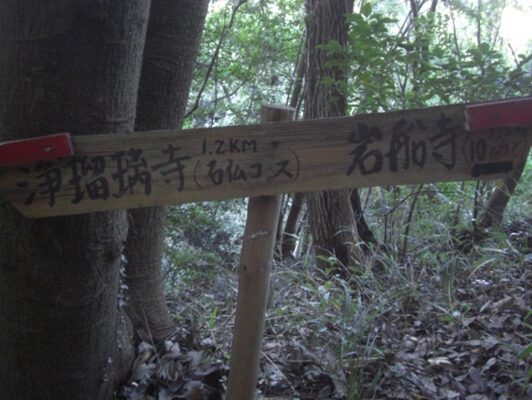 浄瑠璃寺
1.2KM
(石仏コース)
岩船寺